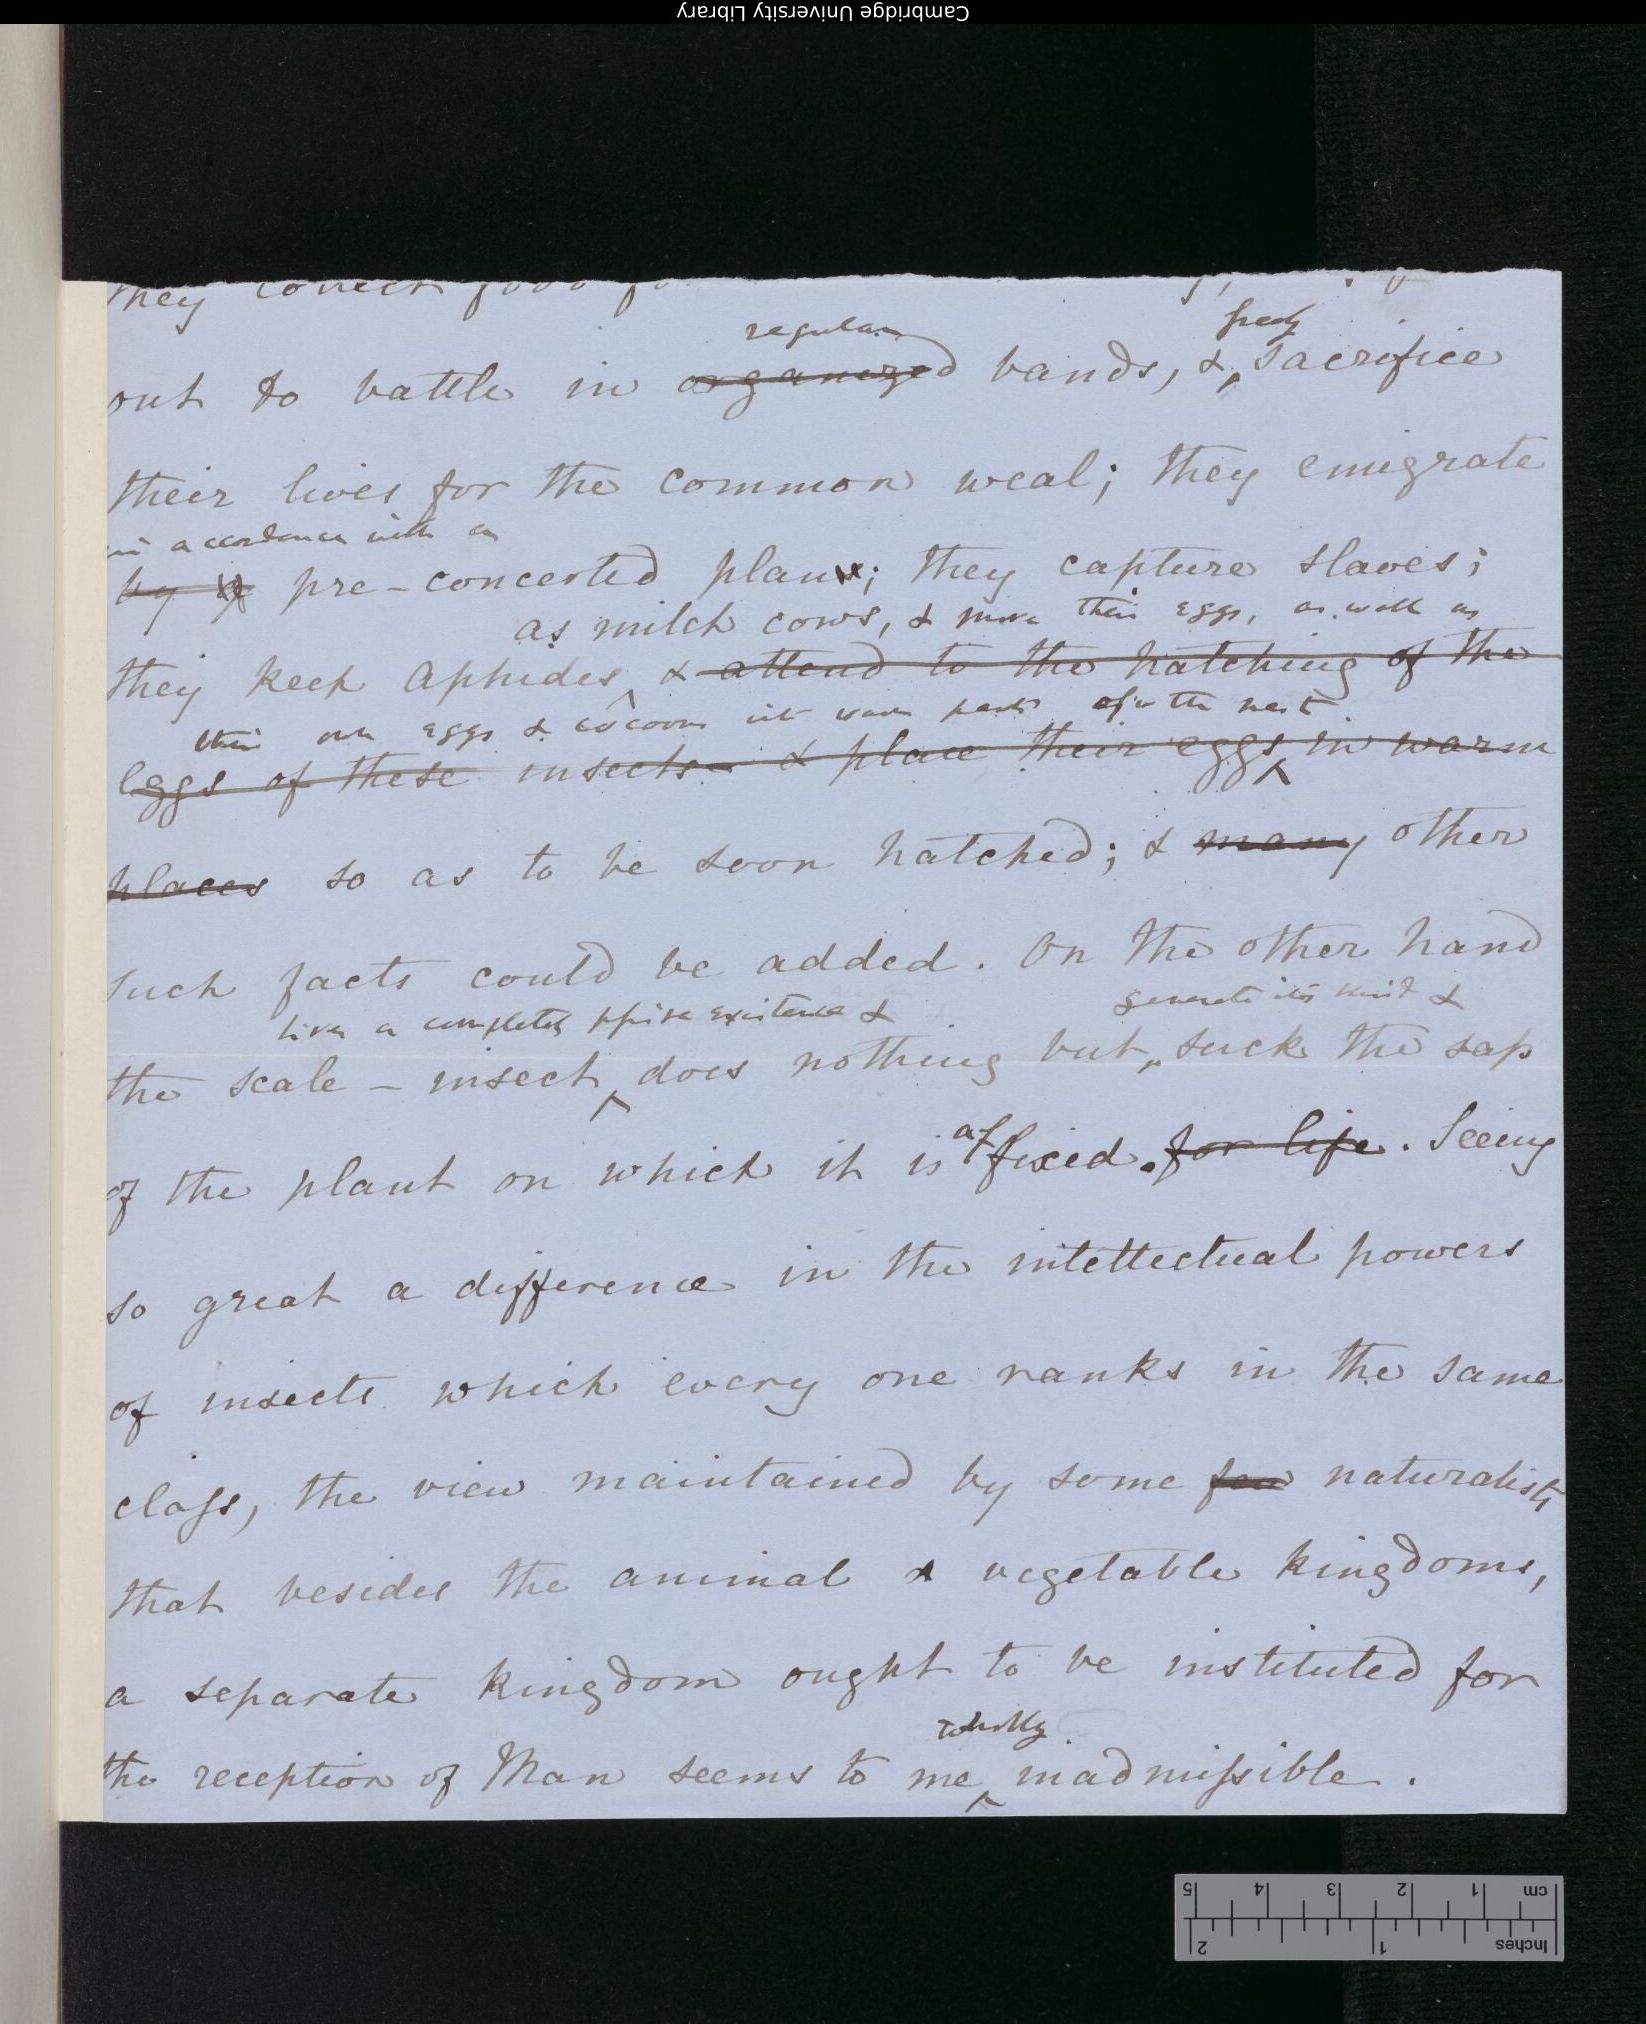 Cambridge University Library
they collect food
regular freely
out to battle in organized bands, & sacrifice
their lives for the common weal; they emigrate
in accordance with a
by pre-concerted plans; they capture slaves;
as milch cows, & move their eggs, as well as
they keep Aphides & attend to the hatching of the
their own eggs & cocoons into warm parts of the nest
eggs of these insects & place their eggs in warm
places so as to be soon hatched; & many other
such facts could be added. On the other hand
lives a completely existence & generate its kind &
the scale-insect does nothing but suck the sap
of the plant on which it is affixed. for life. Seeing
so great a difference in the intellectual powers
of insects which every one ranks in the same
class, the view maintained by some few naturalists
that besides the animal & vegetable kingdoms,
a separate kingdom ought to be instituted for
wholly
the reception of Man seems to me inadmissible.
5 4 3 2 1 cm
2 1 Inches